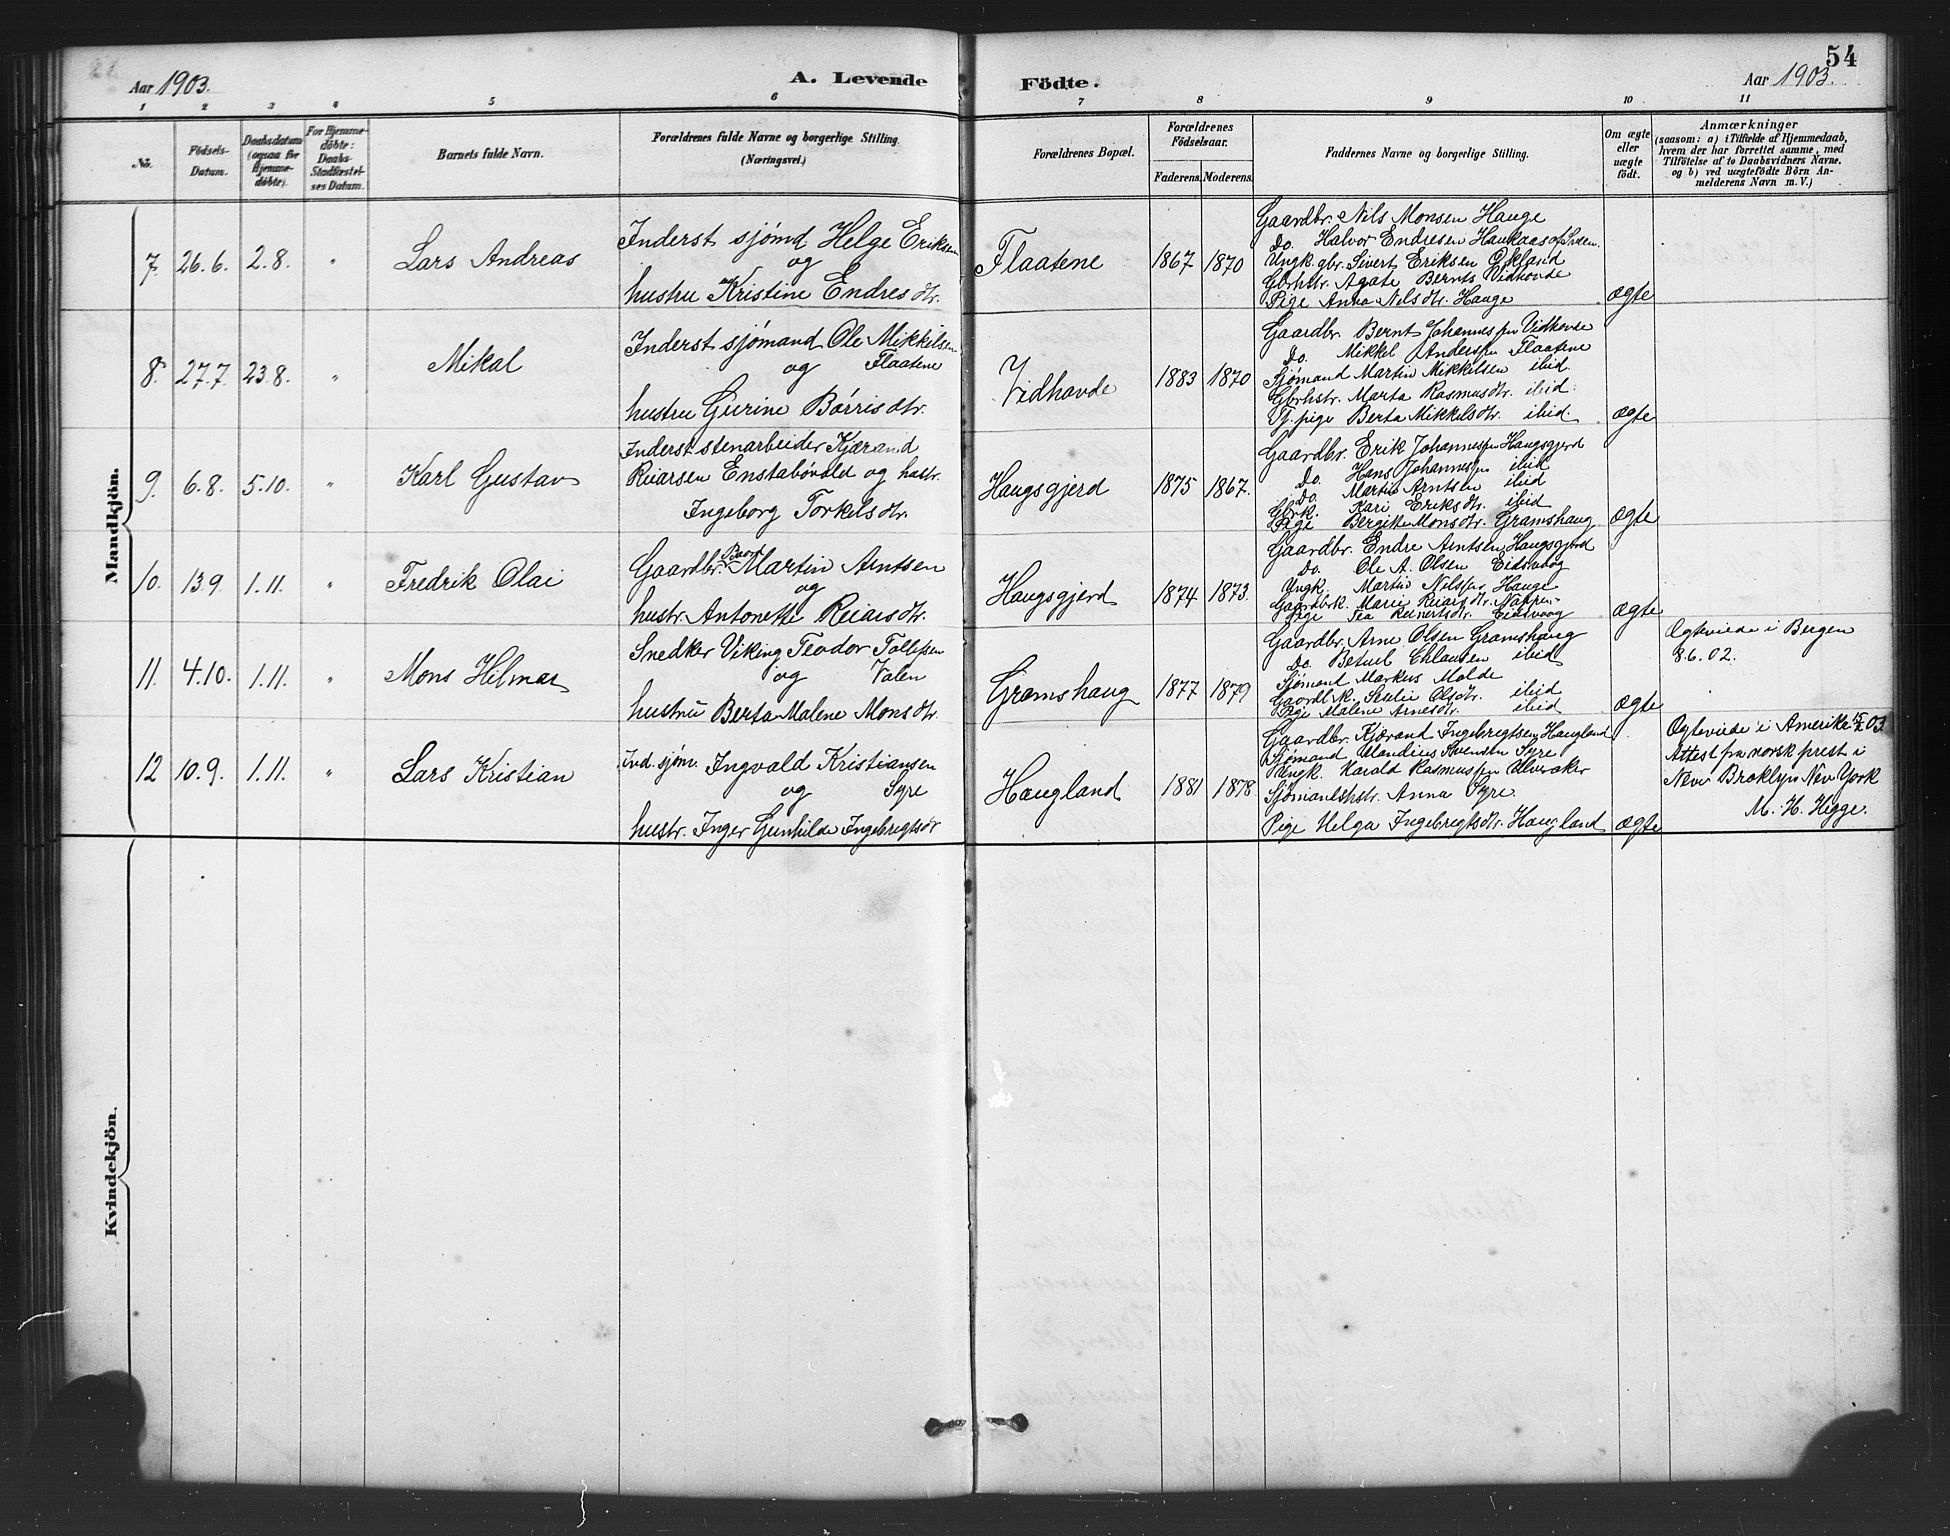 54
Aar 1903. A. Levende Födte. Aar 1903.
1 2 3 4 5 6 7 8 9 10 11
No. Födsels-Datum. Daabsdatum (ogsaa for Hjemme-döbte). For Hjemme-döbte: Daabs-Stadfæstel-ses Datum. Barnets fulde Navn. Forældrenes fulde Navne og borgerlige Stilling. (Næringsvei.) Forældrenes Bopæl. Forældrenes Födselsaar. Faderens. Moderens. Faddernes Navne og borgerlige Stilling. Om ægte eller uægte födt. Anmærkninger (saasom: a) i Tilfælde af Hjemmedaab, hvem der har forrettet samme, med Tilföielse af to Daabsvidners Navne, og b) ved uægtefödte Börn An-melderens Navn m. V.)
Mandkjön.
7. 26.6. 2.8. " Lars Andreas
Inderst sjömd Helge Eriksen
og
hustru Kristine Endresdtr.
Flaatene 1867 1870
Gaardbr. Nils Monsen Hauge
Do. Halvor Endresen Haukaas of Sveen.
Ungk. gbr. Sivert Eriksen Økland
Gbrhstr. Agate Bernts Vidhovde
Pige Anna Nilsdtr. Hauge
ægte
8. 27.7. 23.8. " Mikal
Inderst sjömand Ole Mikkilsen
og Flaatene
hustru Gurine Børrisdtr.
Vidhovde 1883 1870
Gaardbr. Bernt Johannessen Vidhovde
Do. Mikkel Anderssen Flaatene
Sjömand Martin Mikkelsen ibid.
Gbrhstr. Marta Rasmusdtr. ibid
Tj. pige Berta Mikkelsdtr. ibid.
ægte
9. 6.8. 5.10. " Karl Gustav
Inderst stenarbeider Kjærand
Ruarsen Enstabøvold og hustr.
Ingeborg Torkelsdtr.
Haugsgjerd 1875 1867.
Gaardbr. Erik Johannessen Haugsgjerd
Do. Hans Johannessen ibid
Do. Martin Arntsen ibid
Gbrk. Kari Eriksdtr. ibid
Pige Bergite Monsdtr. Gramshaug
ægte
10. 13.9. 1.11. " Fredrik Olai
Gaardbr. Baard Martin Arntsen
og
hustr. Antonette Ruarsdtr.
Haugsgjerd 1874 1873.
Gaardbr. Endre Arntsen Haugsgjerd
Do. Ole A. Olsen Eidsvaag
Ungk. Martin Nilssen Hauge
Gaardbrk. Marie Ruarsdtr. Nappen
Pige Tea Reinertsdtr. Eidsvaag
ægte
11. 4.10. 1.11. " Mons Hilmar
Snedker Viking Teodor Tollefsen
og Valen
hustru Berta Malene Monsdtr.
Gramshaug 1877 1879
Gaardbr. Arne Olsen Gramshaug
Do. Betuel Ehlausen ibid
Sjömand Markus Molde
Gaardbk. Olsdtr. ibid
Pige Malene Arnesdtr. ibid
ægte
Ægteviede i Bergen
8.6.02.
12 10.9. 1.11. " Lars Kristian
Ind. sjøm. Ingvald Kristiansen
og Syre
hustr. Inger Gunhilde Ingebregtsdtr
Haugland 1881 1878.
Gaardbr. Kjærand Ingebregtsen Haugland
Sjömand Mandius Svendsen Syre
Ungk. Harald Rasmussen Ulveraker
Sjömandshstr. Anna Syre.
Pige Helga Ingebregtsdtr. Haugland
ægte
Ægteviede i Amerika 03.
Attest fra norsk prest i
New Broklyn New York
M. H. Hegge.
Kvindekjön.